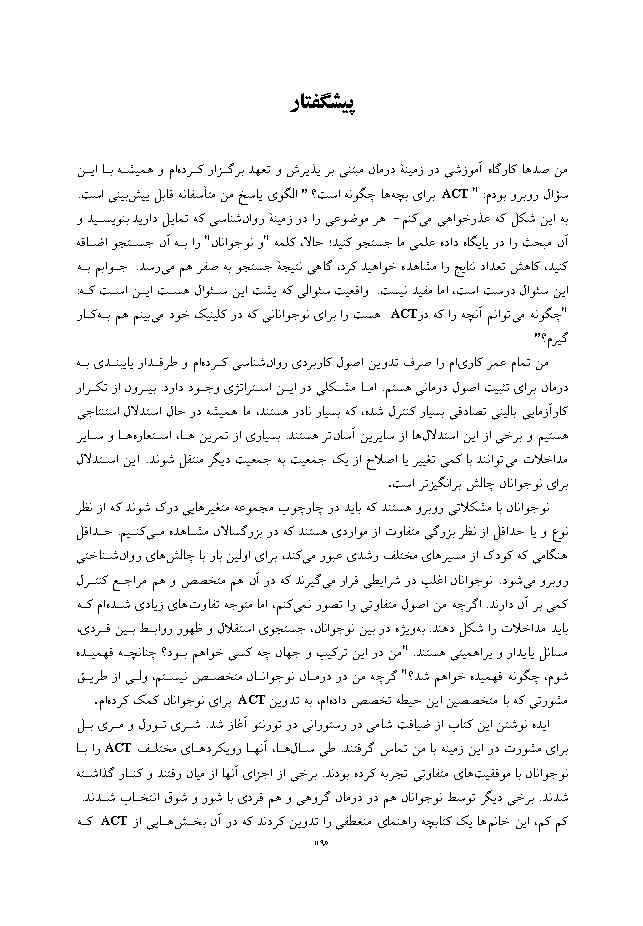 پیشگفتار
من صدها کارگاه آموزشی در زمینهٔ درمان مبتنی بر پذیرش و تعهد برگزار کرده‌ام و همیشه با این
سؤال روبرو بودم: " ACT برای بچه‌ها چگونه است؟ ” الگوی پاسخ من متأسفانه قابل پیش‌بینی است.
به این شکل که عذرخواهی می‌کنم – هر موضوعی را در زمینهٔ روان‌شناسی که تمایل دارید بنویسید و
آن مبحث را در پایگاه داده علمی ما جستجو کنید؛ حالا، کلمه "و نوجوانان" را به آن جستجو اضافه
کنید، کاهش تعداد نتایج را مشاهده خواهید کرد، گاهی نتیجهٔ جستجو به صفر هم می‌رسد. جوابم به
این سوائل درست است، اما مفید نیست. واقعیت سوائلی که پشت این سوائل هست این است که:
"چگونه می‌توانم آنچه را که درACT هست را برای نوجوانانی که در کلینیک خود می‌بینم هم به‌کار
گیرم؟”
من تمام عمر کاری‌ام را صرف تدوین اصول کاربردی روان‌شناسی کرده‌ام و طرفدار پایبندی به
درمان برای تثبیت اصول درمانی هستم. اما مشکلی در این استراتژی وجود دارد. بیرون از تکرار
کارآزمایی بالینی تصادفی بسیار کنترل شده، که بسیار نادر هستند، ما همیشه در حال استدلال استنتاجی
هستیم و برخی از این استدلال‌ها از سایرین آسان‌تر هستند. بسیاری از تمرین ها، استعاره‌ها و سایر
مداخلات می‌توانند با کمی تغییر یا اصلاح از یک جمعیت به جمعیت دیگر منتقل شوند. این استدلال
برای نوجوانان چالش برانگیزتر است.
نوجوانان با مشکلاتی روبرو هستند که باید در چارچوب مجموعه متغیرهایی درک شوند که از نظر
نوع و یا حداقل از نظر بزرگی متفاوت از مواردی هستند که در بزرگسالان مشاهده می‌کنیم. حداقل
هنگامی که کودک از مسیرهای مختلف رشدی عبور می‌کند، برای اولین بار با چالش‌های روان‌شناختی
روبرو می‌شود. نوجوانان اغلب در شرایطی قرار می‌گیرند که در آن هم متخصص و هم مراجع کنترل
کمی بر آن دارند. اگرچه من اصول متفاوتی را تصور نمی‌کنم، اما متوجه تفاوت‌های زیادی شده‌ام که
باید مداخلات را شکل دهند. به‌ویژه در بین نوجوانان، جستجوی استقلال و ظهور روابط بین فردی،
مسائل پایدار و رایج‌تری هستند. "من در این ترکیب و جهان چه کسی خواهم بود؟ چنانچه فهمیده
شوم، چگونه فهمیده خواهم شد؟" گرچه من در درمان نوجوانان متخصص نیستم، ولی از طریق
مشورتی که با متخصصین این حیطه تخصص داده‌ام، به تدوین ACT برای نوجوانان کمک کرده‌ام.
ایده نوشتن این کتاب از ضیافت شامی در رستورانی در تورنتو آغاز شد. شری تورل و مری بل
برای مشورت در این زمینه با من تماس گرفتند. طی سال‌ها، آنها رویکردهای مختلف ACT را با
نوجوانان با موفقیت‌های متفاوتی تجربه کرده بودند. برخی از اجزای آنها از میان رفتند و کنار گذاشته
شدند. برخی دیگر توسط نوجوانان هم در درمان گروهی و هم فردی با روش و شوق انتخاب شدند.
کم کم، این خانم‌ها یک کتابچه راهنمای منعطفی را تدوین کردند که در آن بخش‌هایی از ACT که